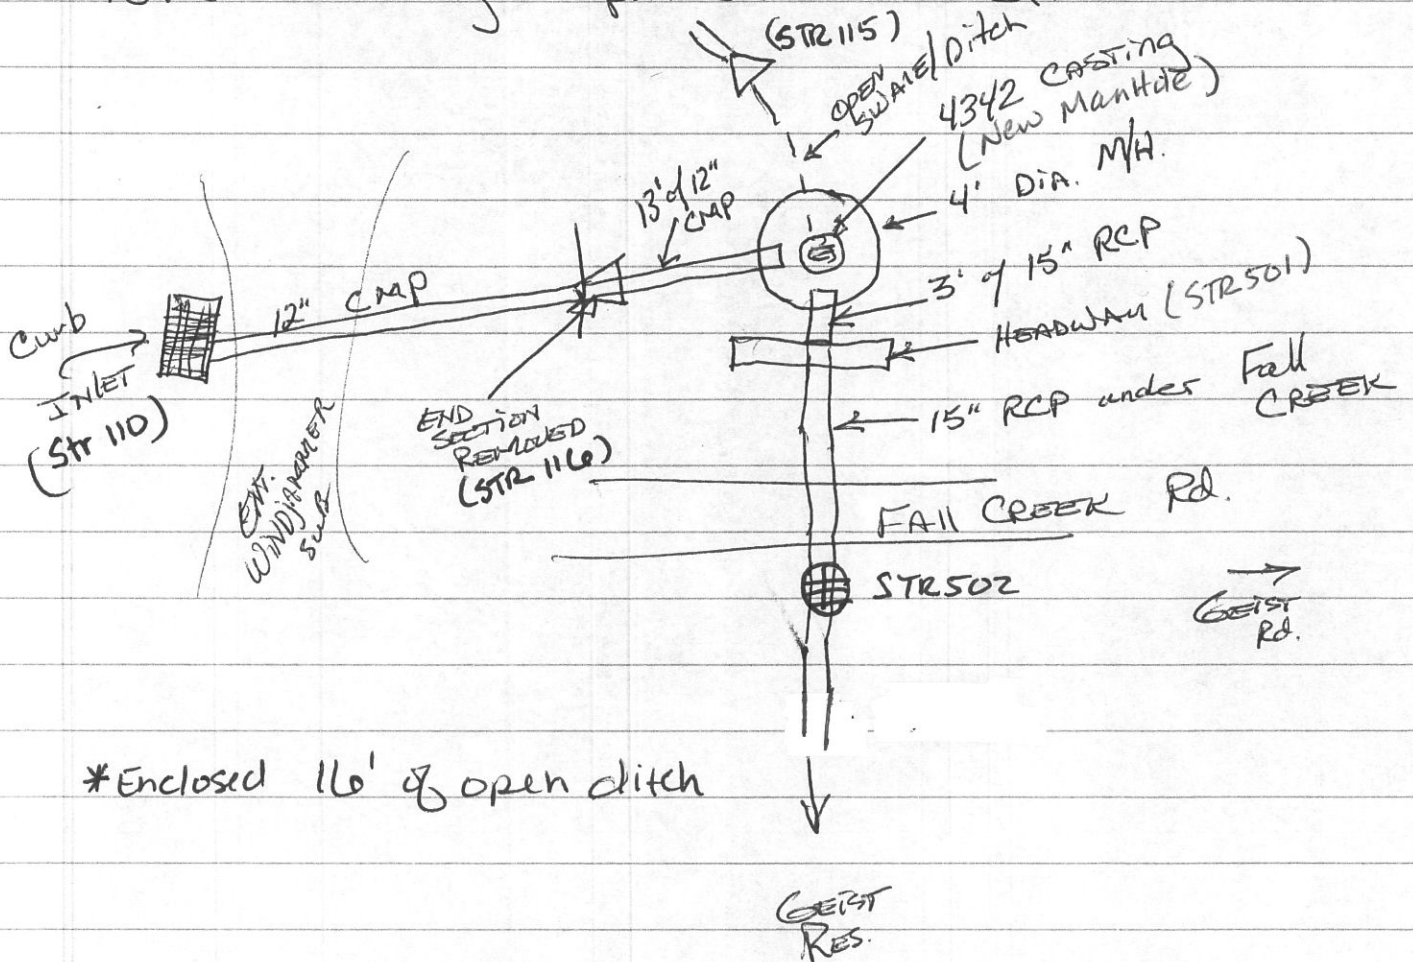 (STR 115)
OPEN
SWALE/Ditch
4342 CASTING
(New ManHole)
4' DIA. M/H.
13' of 12"
CMP
3' of 15" RCP
HEADWALL (STR 501)
12" CMP
Curb
INLET
(Str 110)
15" RCP under Fall
CREEK
END
SECTION
REMOVED
(STR 116)
ENT.
WINDJAMMER
SUB
FALL CREEK Rd.
STR502
GEIST
Rd.
*Enclosed 16' of open ditch
GEIST
RES.